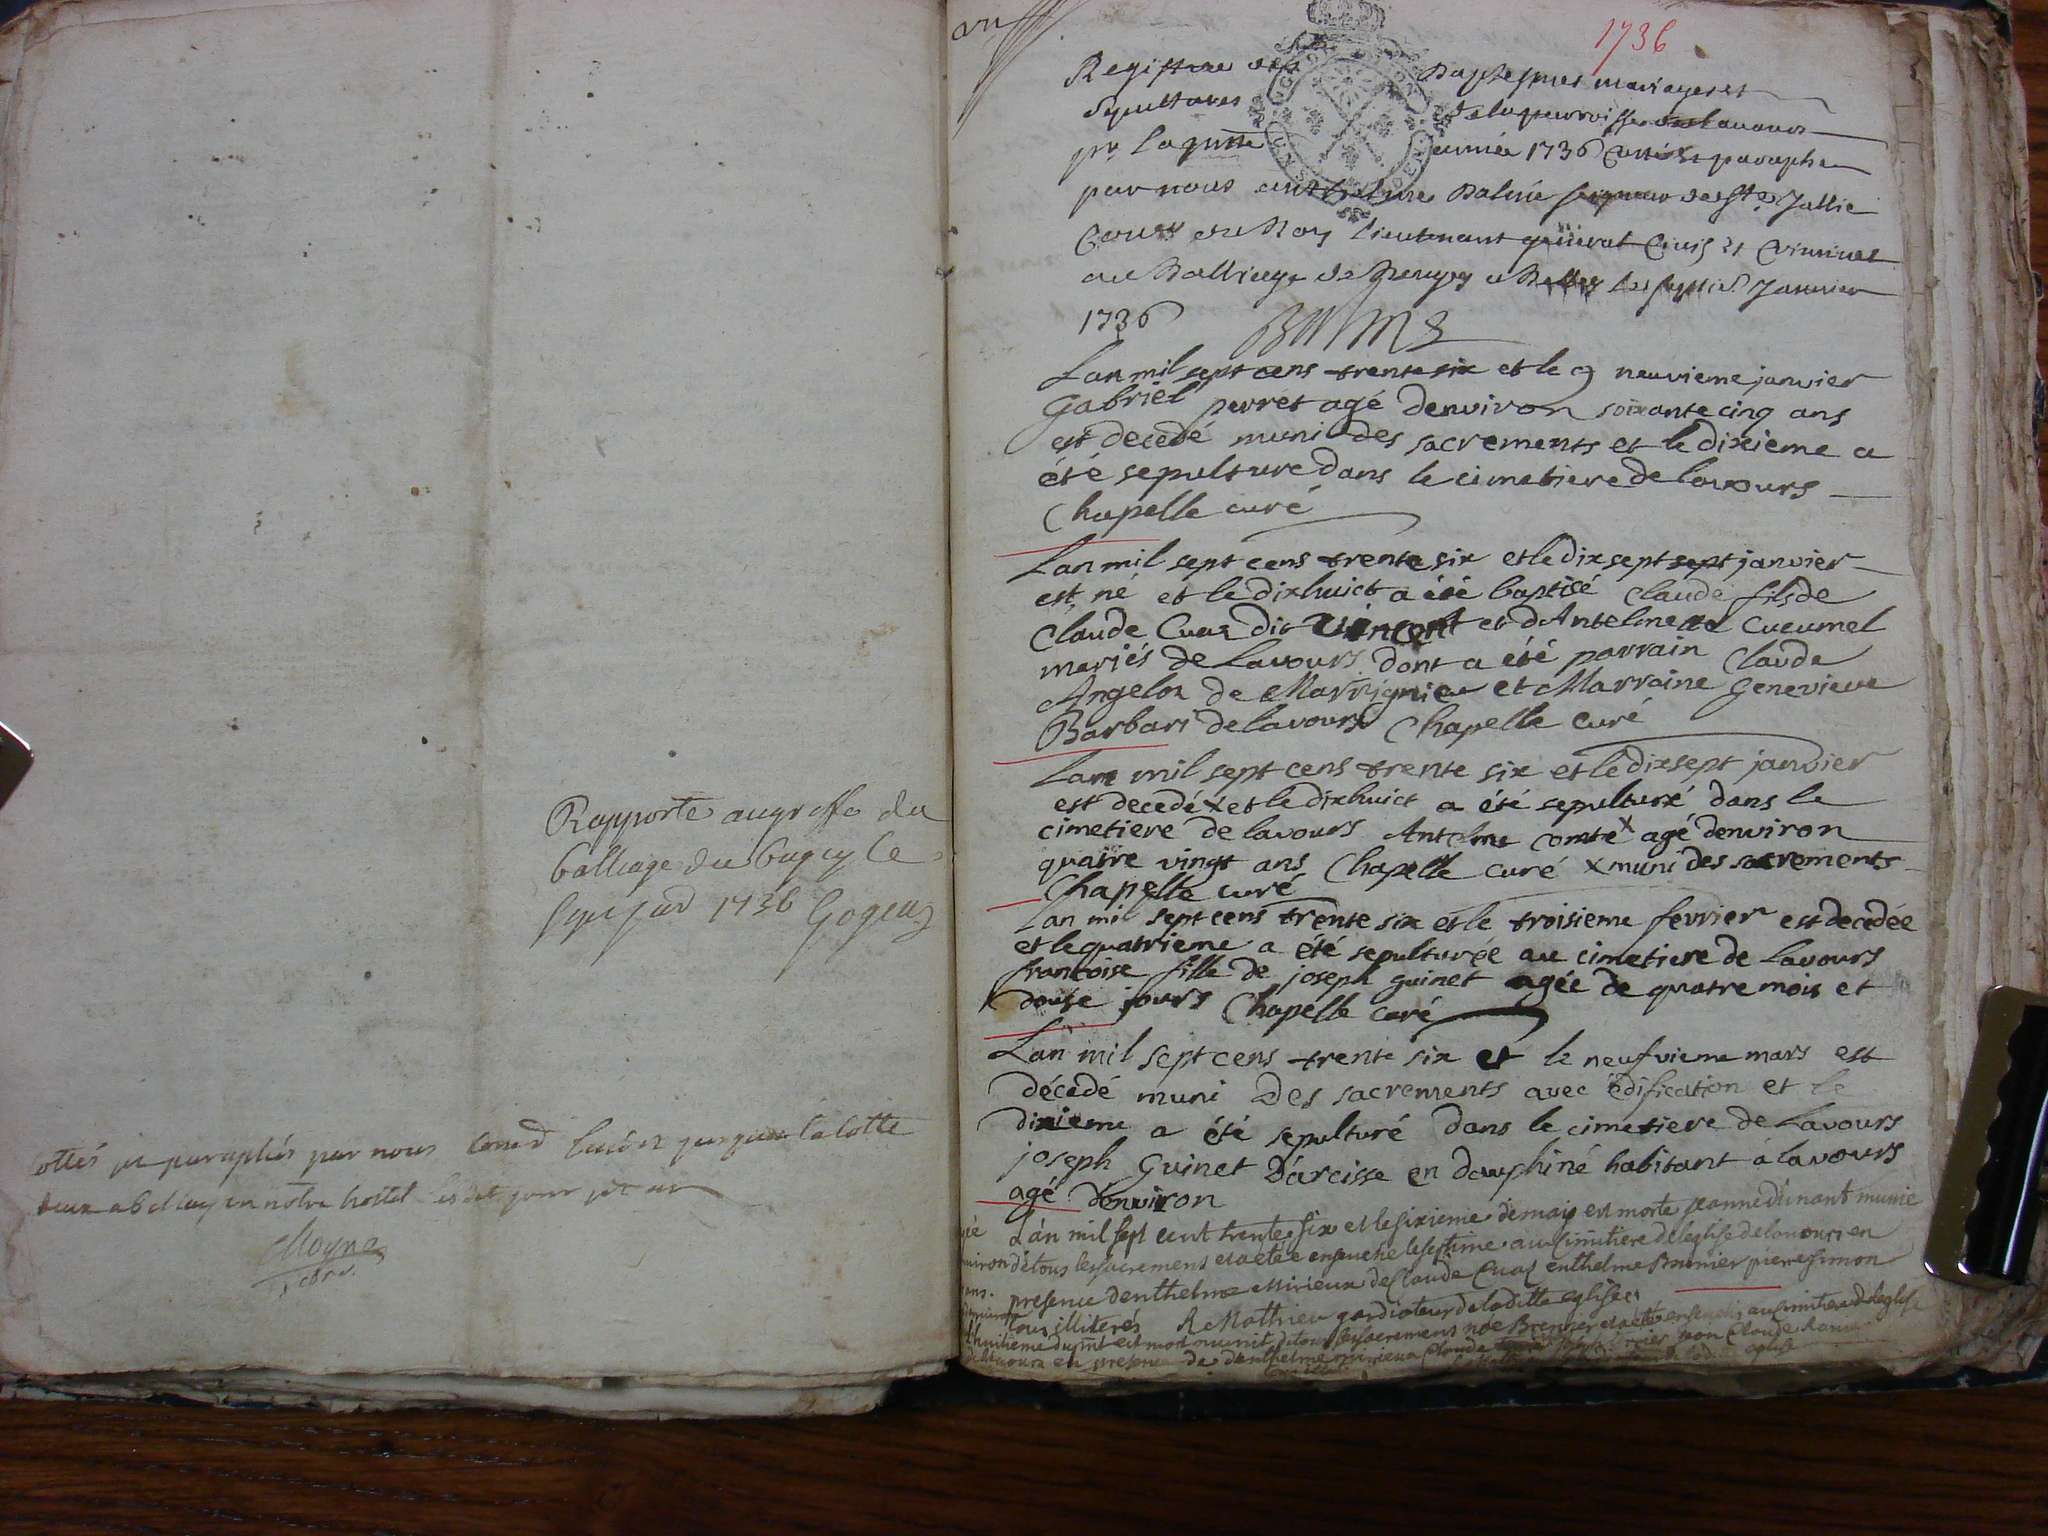 Rapporté au greffe du
balliage du bugey le
1736
cottés et paraphés par nous jusques la cotte
deux en notre hostel
1736
Registre des Baptesmes mariages et
sepultures de la parroisse de Lavours
pr la pntte année 1736 Cotté et paraphe
par nous anthelme Balme seigneur de Ste Jullie
Conser du Roy lieutenant general Civil et Criminel
au Balliage de Beugey a Belley janvier
1736
Balme
Lan mil sept cens trente six et le 9 neuvieme janvier
Gabriel perret agé denviron soixante cinq ans
est decedé muni des sacrements et le dixieme a
été sepulturé dans le cimetiere de lavours
Chapelle curé
Lan mil sept cens trente six et le dix sept sept janvier
est né et le dixhuict a été baptisé Claude fils de
Claude Cuaz dit Vincent et dAntelmette Cueumel
mariés de Lavours dont a été parrain Claude
Angelot de et Marraine Genevieve
Barbari de lavours Chapelle curé
Lan mil sept cens trente six et le dixsept janvier
est decedé x et le dixhuict a été sepulturé dans le
cimetiere de lavours Antelme comte x agé denviron
quatre vingt ans Chapelle curé x muni des sacrements
Chapelle curé
Lan mil sept cens trente six et le troisieme fevrier est decedée
et le quatrieme a été sepulturée au cimetiere de Lavours
francoise fille de joseph guinet agée de quatre mois et
douse jours Chapelle curé
Lan mil sept cens trente six et le neufvieme mars est
décedé muni des sacrements avec édification et le
dixieme a été sepulturé dans le cimetiere de Lavours
joseph Guinet Darcisse en dauphiné habitant à lavours
agé denviron
Lán mil sept cent trente six et le sixieme de mais est morte jeanne dunant munie
de tous les sacremens et a etée ensevelie le septime au Cimitiere de leglise de lavours en
presence denthelme Mirieux de Claude Cuaz enthelme Bournier pierre simon
tous illiterés R Mathieu gardiateur de la ditte eglise
huitieme dumt est mort munit de tous les sacremens noe Brenier et a etté ensepvelis au simitiere de leglese
de lavours en presence de denthelme mirieux Claude